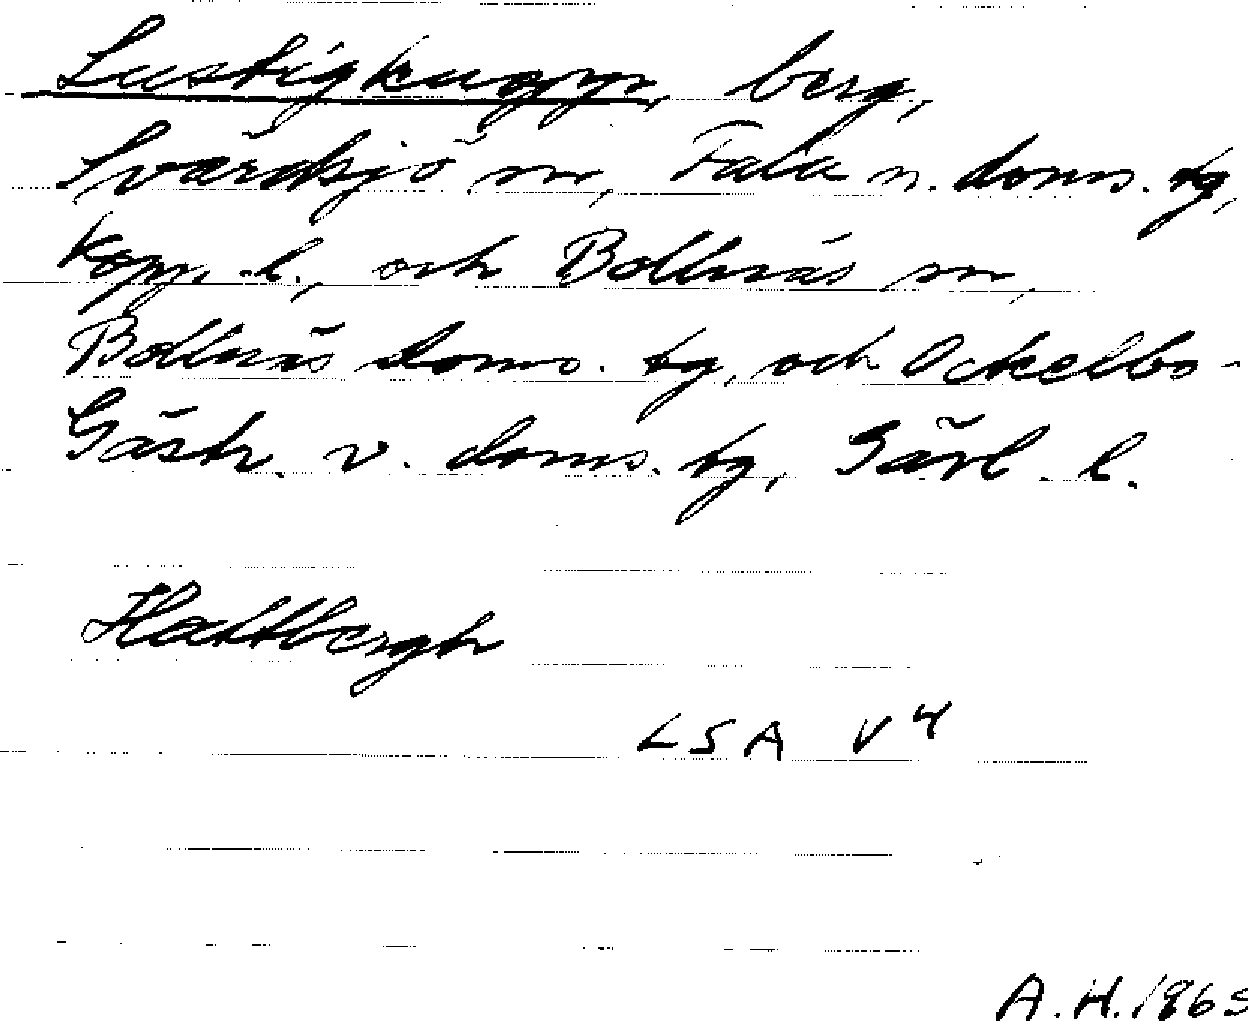 Lustigknopp, berg,
Svärdsjö sn, Falu n. doms. tg,
Kopp. l., och Bollnäs sn,
Bollnäs doms. tg, och Ockelbo-
Gästr. v. doms. tg, Gävl. l.
Hattbergh
LSA V4
A.H. 1965